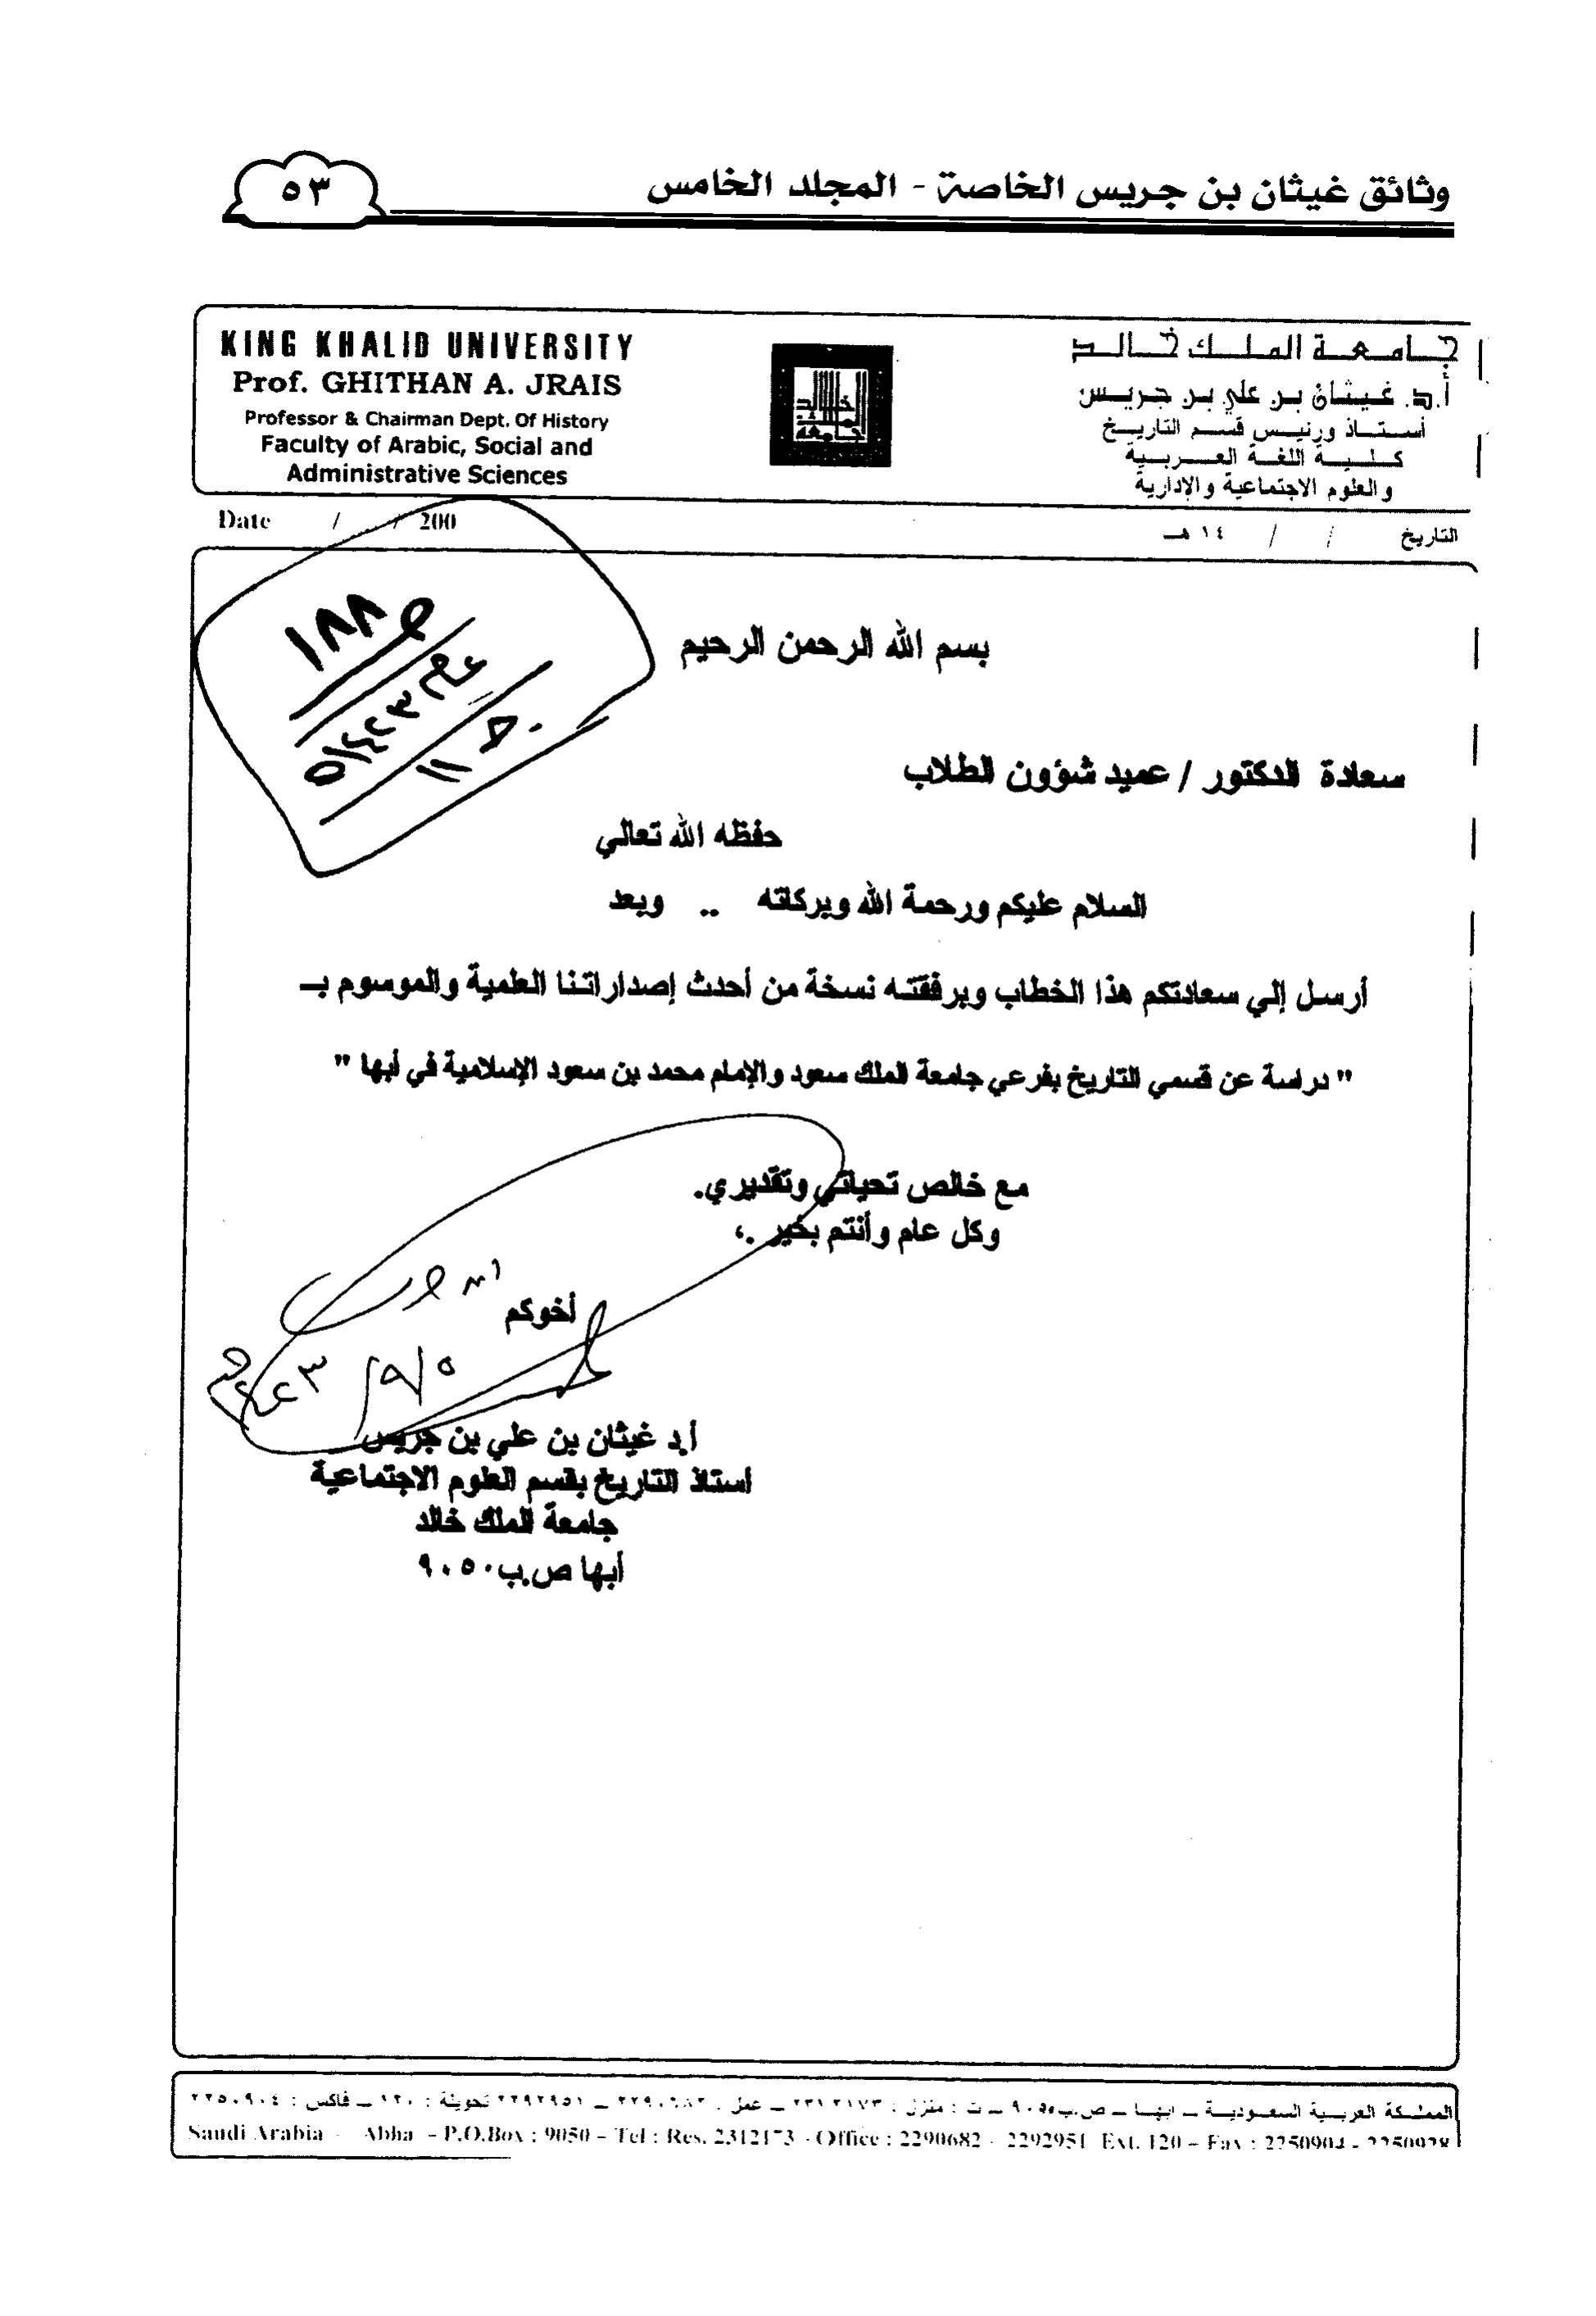 وثائق غيثان بن جريس الخاصة - المجلد الخامس
٥٣
KING KHALID UNIVERSITY
Prof. GHITHAN A. JRAIS
Professor & Chairman Dept. Of History
Faculty of Arabic, Social and
Administrative Sciences
جامعة الملك خالد
أ.د. غيثان بن علي بن جريس
أستاذ ورئيس قسم التاريخ
كلية اللغة العربية
والعلوم الاجتماعية والإدارية
Date / / 200
التاريخ / / ١٤ هـ
ص ١٨٨
عام ١٤٢٣هـ
بسم الله الرحمن الرحيم
سعادة الدكتور / عميد شؤون الطلاب
حفظه الله تعالي
السلام عليكم ورحمة الله وبركاته .. وبعد
أرسل إلي سعادتكم هذا الخطاب وبرفقته نسخة من أحدث إصداراتنا العلمية والموسوم بـ
" دراسة عن قسمي التاريخ بفرعي جامعة الملك سعود والإمام محمد بن سعود الإسلامية في أبها "
مع خالص تحياتي وتقديري.
وكل عام وأنتم بخير .،
أخوكم
أ.د غيثان بن علي بن جريس
أستاذ التاريخ بقسم العلوم الاجتماعية
جامعة الملك خالد
أبها ص.ب ٩٠٥٠
المملكة العربية السعودية ـ ابها ـ ص.ب ٩٠٥٠ ـ ت : منزل : ٢٣١٢١٧٣ ـ عمل : ٢٢٩٠٦٨٢ ـ ٢٢٩٢٩٥١ تحويلة : ١٢٠ ـ فاكس : ٢٢٥٠٩٠٤
Saudi Arabia - Abha - P.O.Box : 9050 - Tel : Res. 2312173 - Office : 2290682 - 2292951 Ext. 120 - Fax : 2250904 - 2250928